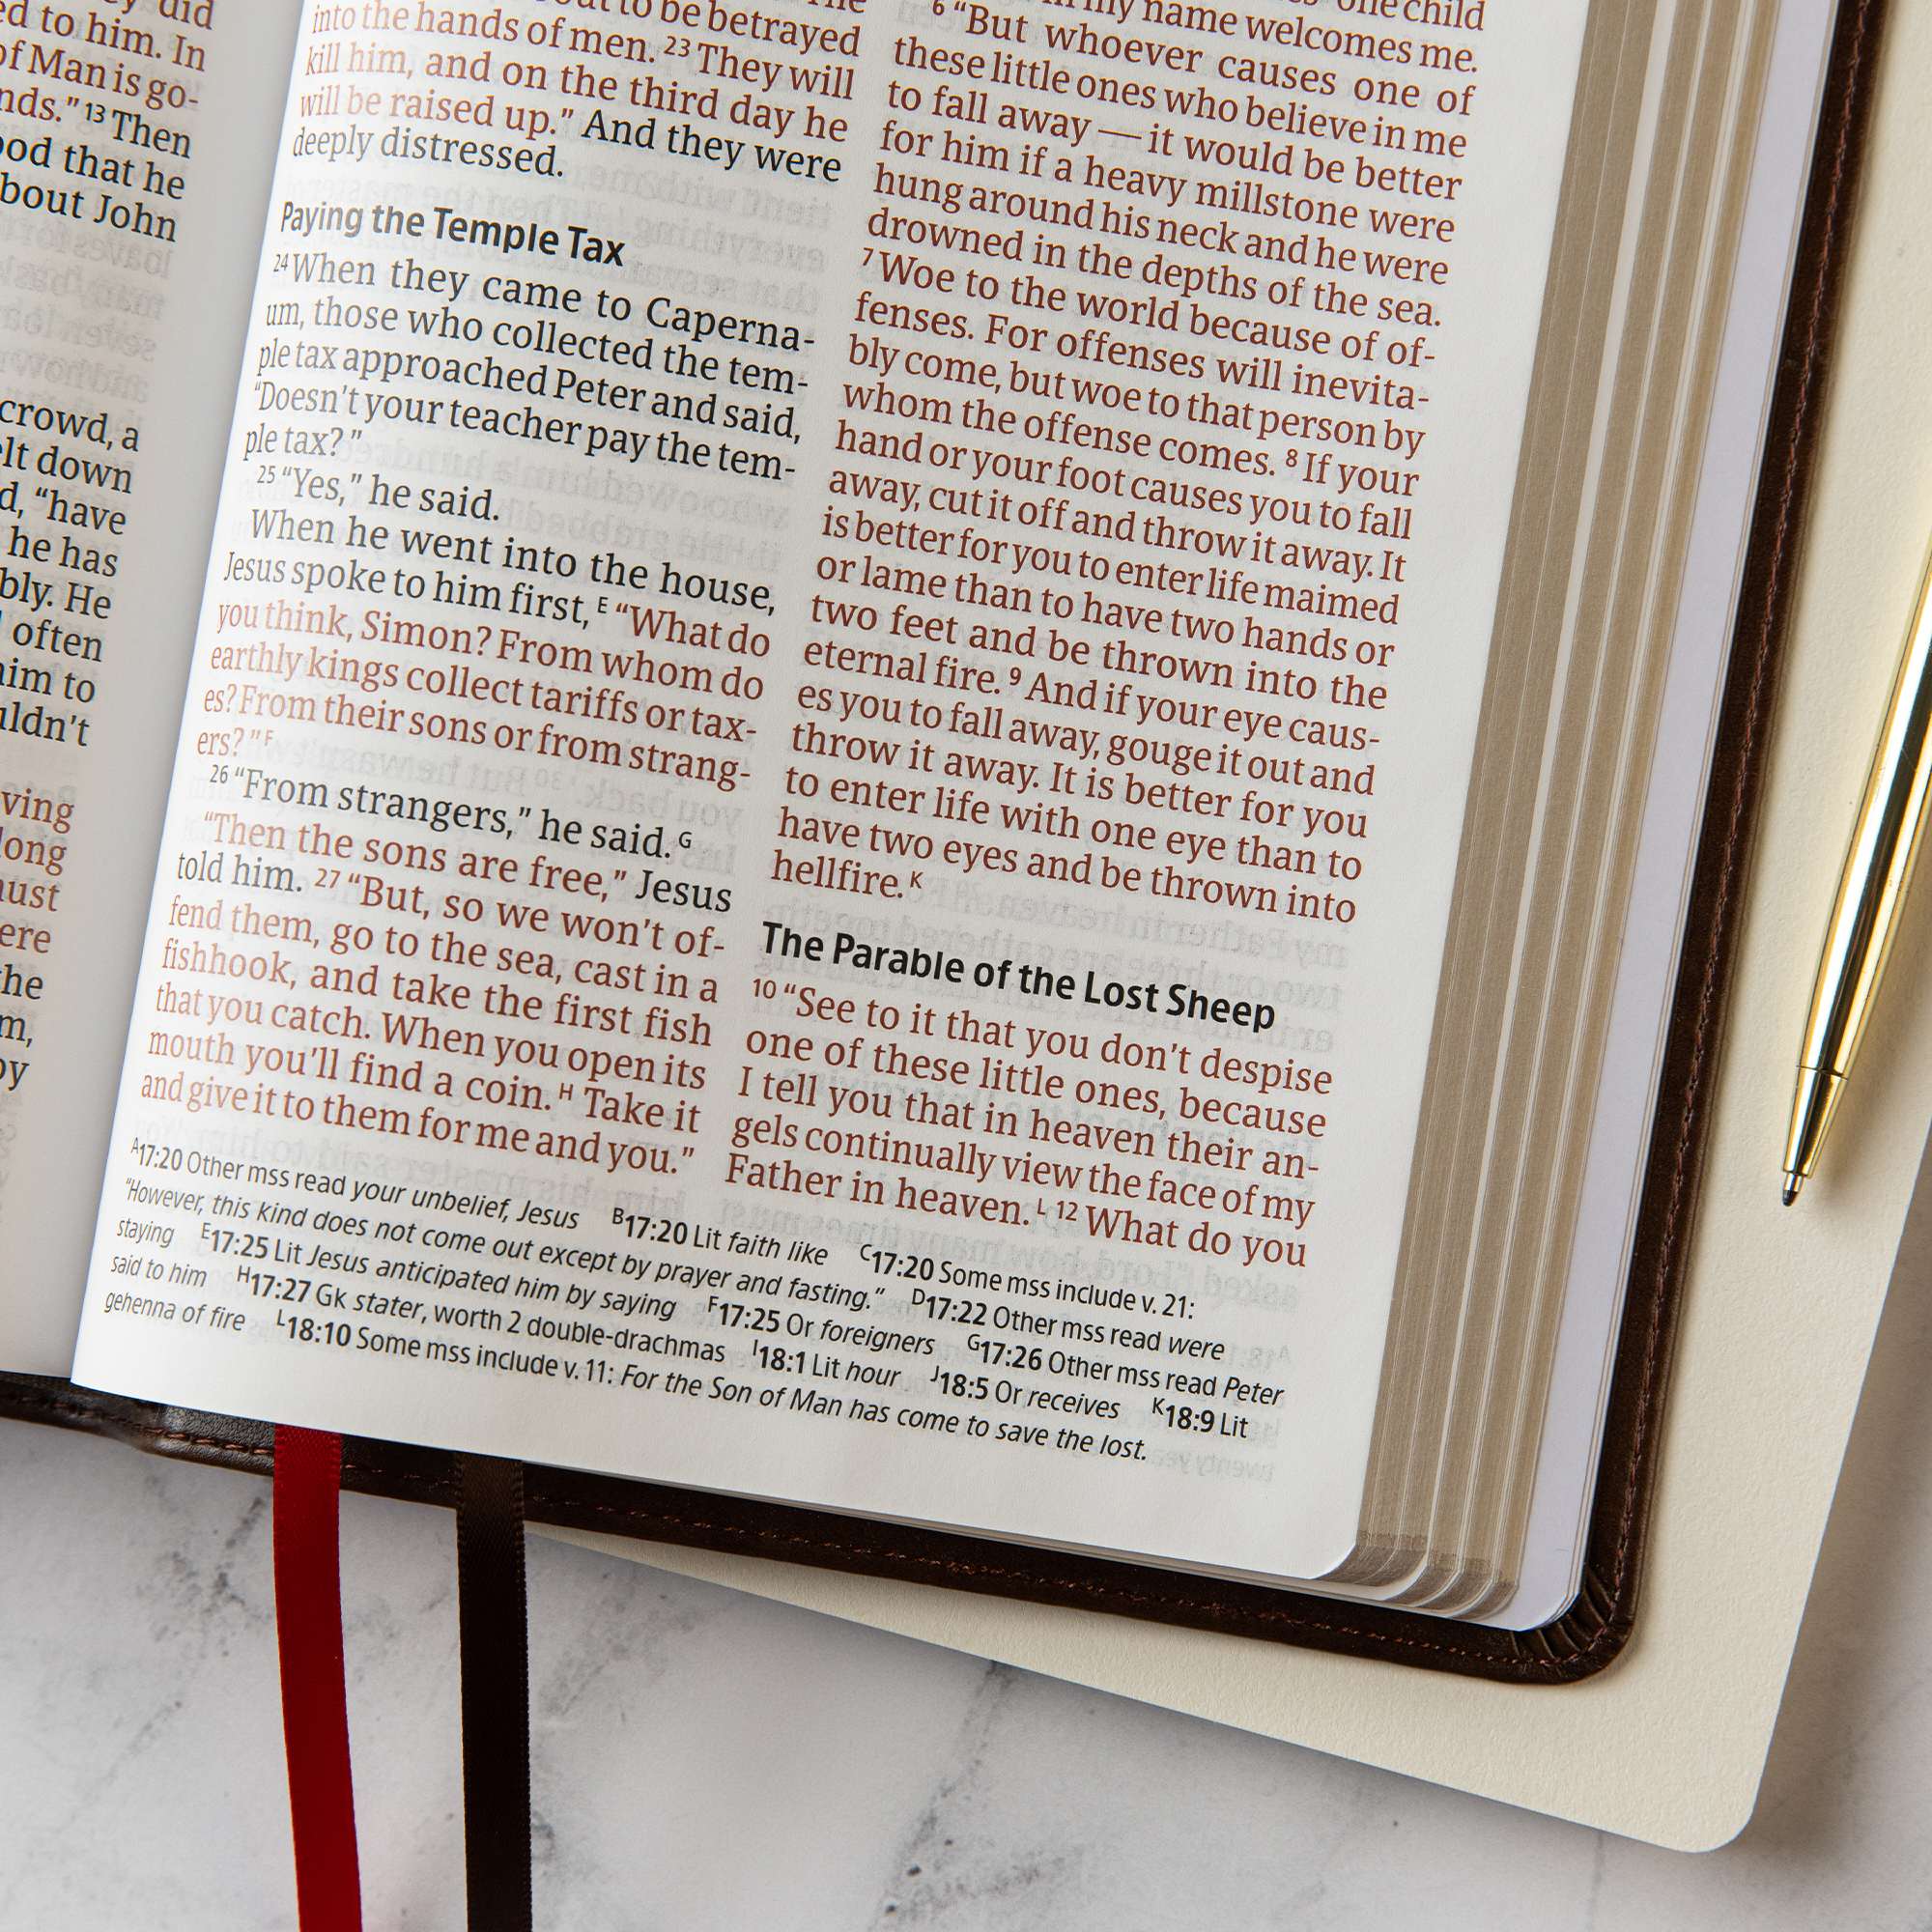 did
to him. In
of Man is go-
nds." 13 Then
that he
bout John
crowd, a
elt down
d, "have
he has
bly. He
often
him to
uldn't
ving
long
must
ere
the
m,
by
to be betrayed
into the hands of men. 23 They will
kill him, and on the third day he
will be raised up." And they were
deeply distressed.
Paying the Temple Tax
24 When they came to Caperna-
um, those who collected the tem-
ple tax approached Peter and said,
"Doesn't your teacher pay the tem-
ple tax?"
25 "Yes," he said.
When he went into the house,
Jesus spoke to him first, E "What do
you think, Simon? From whom do
earthly kings collect tariffs or tax-
es? From their sons or from strang-
ers?" F
26 "From strangers," he said. G
"Then the sons are free," Jesus
told him. 27 "But, so we won't of-
fend them, go to the sea, cast in a
fishhook, and take the first fish
that you catch. When you open its
mouth you'll find a coin. H Take it
and give it to them for me and you."
one child
in my name welcomes me.
6 "But whoever causes one of
these little ones who believe in me
to fall away — it would be better
for him if a heavy millstone were
hung around his neck and he were
drowned in the depths of the sea.
7 Woe to the world because of of-
fenses. For offenses will inevita-
bly come, but woe to that person by
whom the offense comes. 8 If your
hand or your foot causes you to fall
away, cut it off and throw it away. It
is better for you to enter life maimed
or lame than to have two hands or
two feet and be thrown into the
eternal fire. 9 And if your eye caus-
es you to fall away, gouge it out and
throw it away. It is better for you
to enter life with one eye than to
have two eyes and be thrown into
hellfire. K
The Parable of the Lost Sheep
10 "See to it that you don't despise
one of these little ones, because
I tell you that in heaven their an-
gels continually view the face of my
Father in heaven. L 12 What do you
A17:20 Other mss read your unbelief, Jesus B17:20 Lit faith like C17:20 Some mss include v. 21:
"However, this kind does not come out except by prayer and fasting." D17:22 Other mss read were
staying E17:25 Lit Jesus anticipated him by saying F17:25 Or foreigners G17:26 Other mss read Peter
said to him H17:27 Gk stater, worth 2 double-drachmas I18:1 Lit hour J18:5 Or receives K18:9 Lit
gehenna of fire L18:10 Some mss include v. 11: For the Son of Man has come to save the lost.